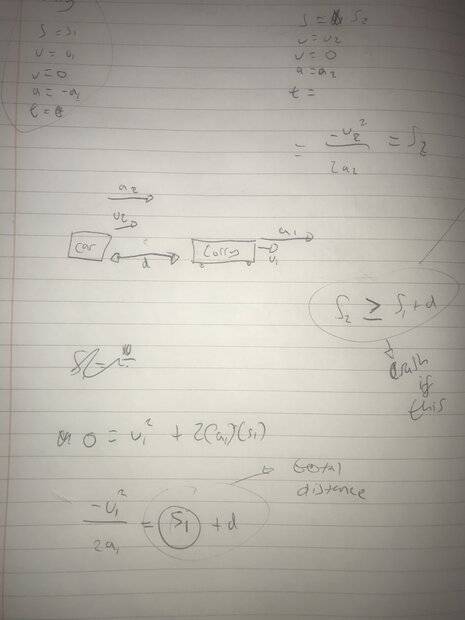 S = S₁
u = u₁
v = 0
a = -a₁
t = t
S = S₂
u = u₂
v = 0
a = a₂
t =
= -u₂² / 2a₂ = S₂
a₂
u₂
car
d
Lorry
a₁
u₁
S₂ ≥ S₁ + d
Crash
if
this
0 = u₁² + 2(a₁)(s₁)
total
distance
-u₁² / 2a₁ = S₁ + d